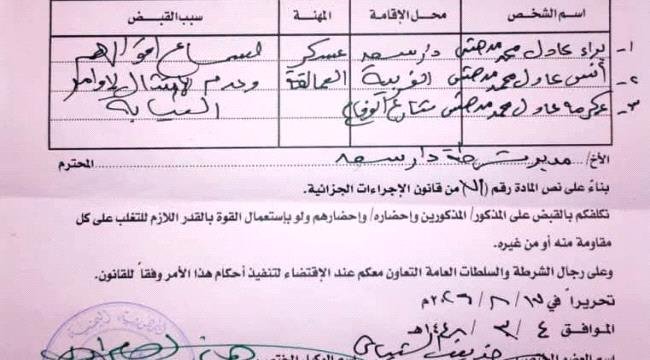 اسم الشخص محل الإقامة المهنة سبب القبض
١- براء عادل محمد دار سعد عسكر لسماع أقوالهم
٢- أنس عادل محمد الغربية العمالقة وعدم الامتثال لأوامر
٣- عكرمة عادل محمد شارع النيابة
الأخ/ مدير شرطة دار سعد المحترم
بناءً على نص المادة رقم ( ) من قانون الإجراءات الجزائية.
نكلفكم بالقبض على المذكور/ المذكورين وإحضاره/ وإحضارهم ولو بإستعمال القوة بالقدر اللازم للتغلب على كل
مقاومة منه أو من غيره.
وعلى رجال الشرطة والسلطات العامة التعاون معكم عند الإقتضاء لتنفيذ أحكام هذا الأمر وفقاً للقانون.
تحريراً في / / ٢٠٢٦م
الموافق ٤ / ٣ / ١٤٤٨هـ